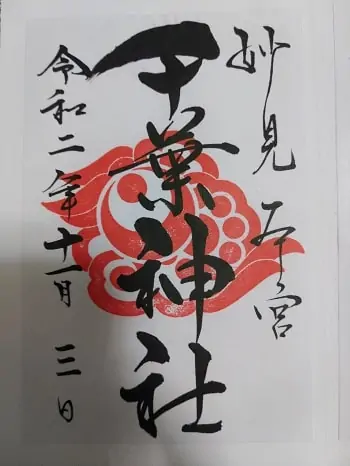 妙見本宮
千葉神社
令和二年十一月三日